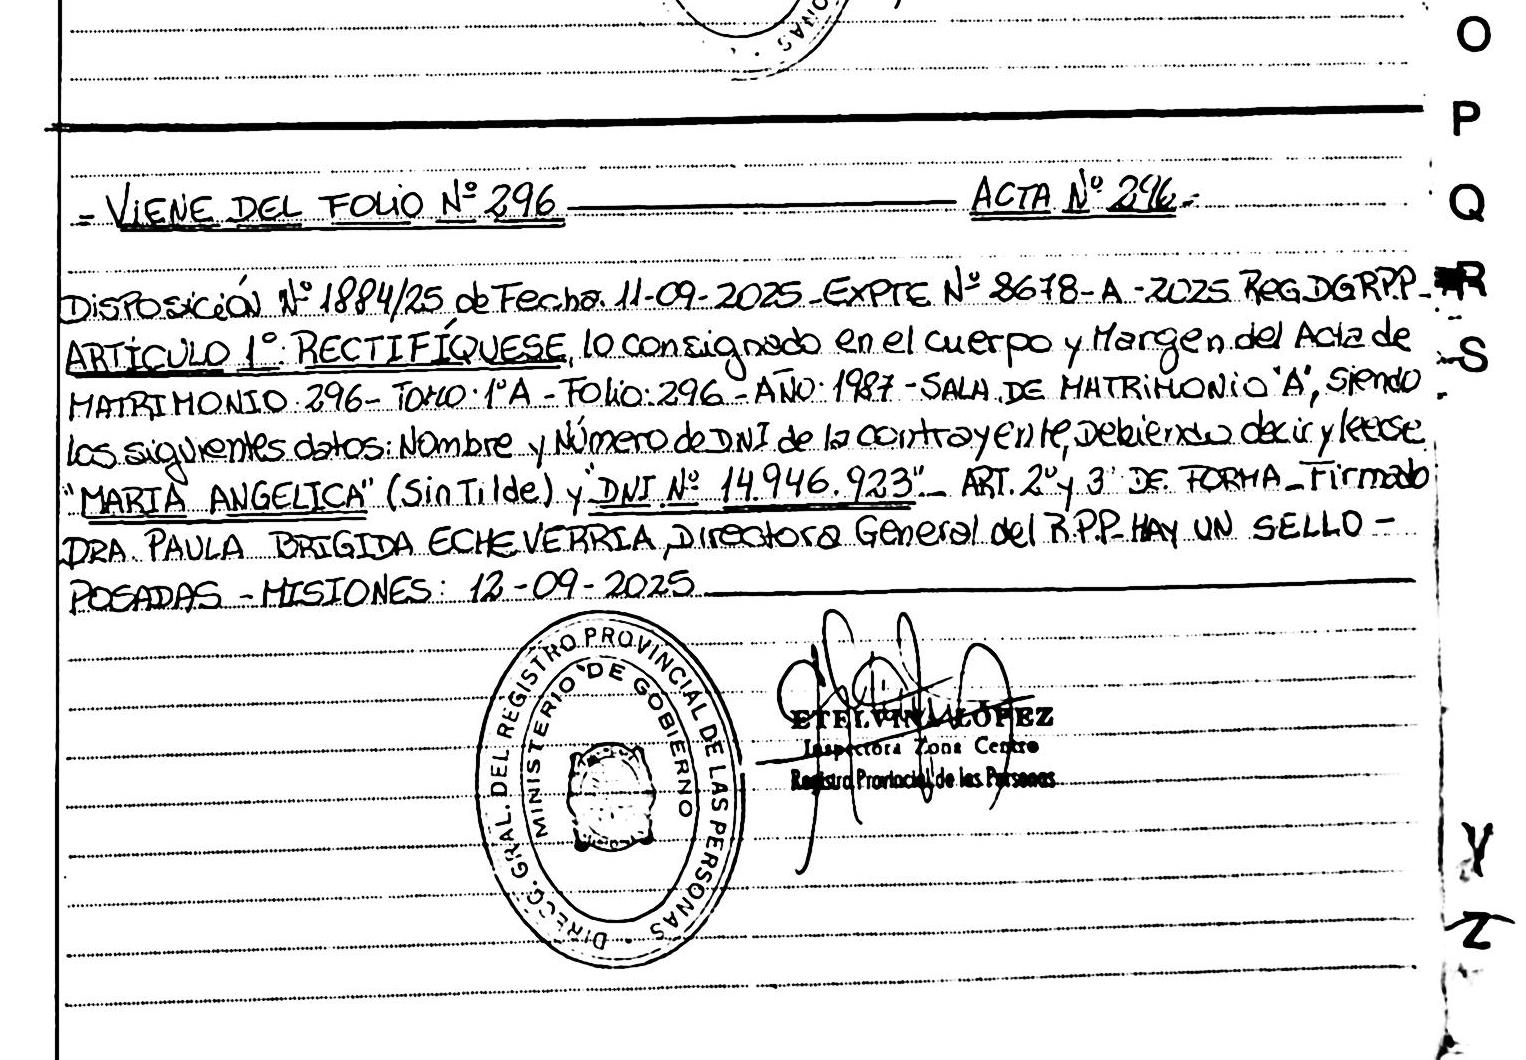 ONAS
O
P
= VIENE DEL FOLIO Nº 296 ACTA Nº 296=
Q
DISPOSICIÓN Nº 1884/25 de Fecha. 11-09-2025-EXPTE Nº 8678-A-2025 REG.DGRP.P-
R
ARTÍCULO 1º: RECTIFÍQUESE, lo consignado en el cuerpo y Margen del Acta de
S
MATRIMONIO 296- TOMO 1ºA - FOLIO: 296 - AÑO 1987 - SALA DE MATRIMONIO "A", siendo
los siguientes datos: Nombre y Número de DNI de la contrayente, Debiendo decir y leerse
"MARIA ANGELICA" (Sin Tilde) y "DNI Nº 14.946.923"- ART. 2º y 3º DE FORMA - Firmado
DRA. PAULA BRIGIDA ECHEVERRIA, Directora General del R.P.P- HAY UN SELLO -
POSADAS - MISIONES: 12-09-2025
DIRECC. GRAL. DEL REGISTRO PROVINCIAL DE LAS PERSONAS
MINISTERIO DE GOBIERNO
ETELVINA LÓPEZ
Inspectora Zona Centro
Registro Provincial de las Personas
Y
Z